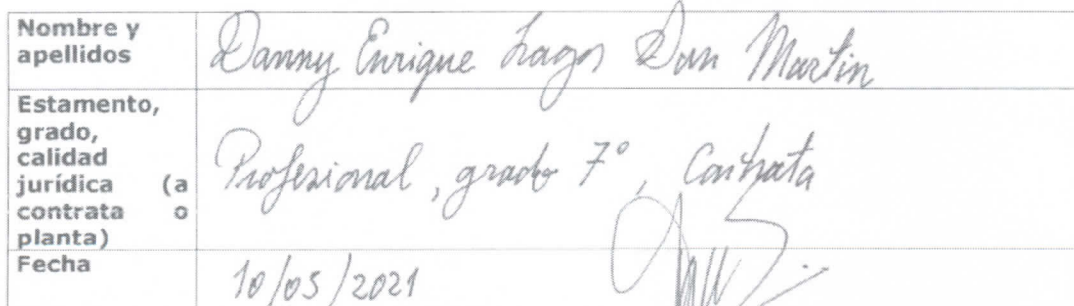 Nombre y
apellidos
Danny Enrique Lagos San Martin
Estamento,
grado,
calidad
jurídica (a
contrata o
planta)
Profesional, grado 7°, Contrata
Fecha
10/05/2021